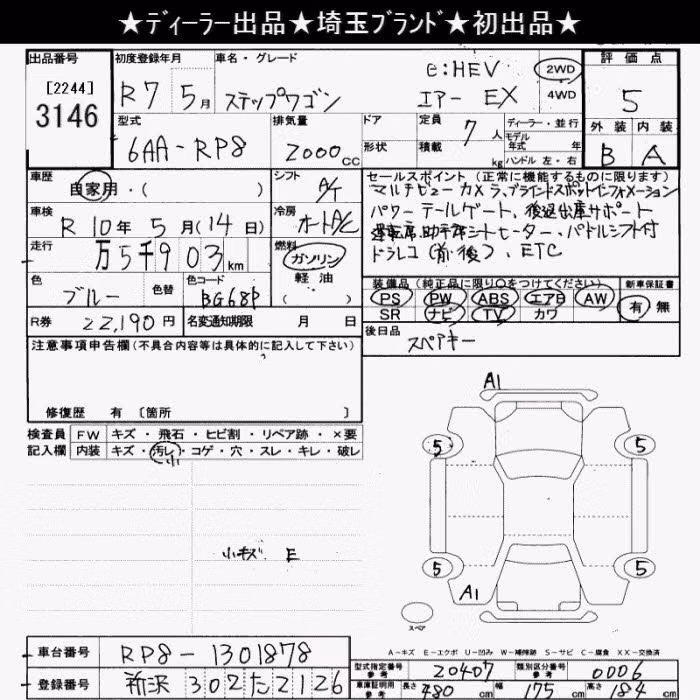 ★ディーラー出品★埼玉ブランド★初出品★
出品番号 [2244] 3146
初度登録年月 R7 5月
車名・グレード ステップワゴン e:HEV エアー EX
2WD 4WD
評価点 5
外装 内装
B A
型式 6AA-RP8
排気量 2000cc
ドア 形状
定員 7人
積載 kg
ディーラー・並行
モデル年式 年
ハンドル 左・右
車歴 自家用・( )
シフト A/T
車検 R 10年 5月(14日)
冷房 オートA/C
走行 万5千903km
燃料 ガソリン 軽油 ( )
色 ブルー 色替
色コード BG68P
R券 22,190円
名変通知期限 月 日
セールスポイント(正常に機能するものに限ります)
マルチビューカメラ、ブラインドスポットインフォメーション
パワーテールゲート、後退出庫サポート
運転席、助手席シートヒーター、パドルシフト付
ドラレコ(前後)、ETC
装備品(純正品に限り○をつけてください)
PS PW ABS エアB AW
SR ナビ TV カワ
新車保証書 有 無
後日品 スペアキー
注意事項申告欄(不具合内容等は具体的に記入して下さい)
修復歴 有 〔箇所 〕
検査員 FW キズ・飛石・ヒビ割・リペア跡・×要
記入欄 内装 キズ・汚し・コゲ・穴・スレ・キレ・破レ
小
小キズ E
A1
5 5
5 5
A1
スペア
A-キズ E-エクボ U-凹み W-補修跡 S-サビ C-腐食 XX-交換済
車台番号 RP8-1301878
登録番号 所沢 302た2126
型式指定番号 参考 20407
類別区分番号 参考 0006
車庫証明用 参考 長さ 480cm 幅 175cm 高さ 184cm